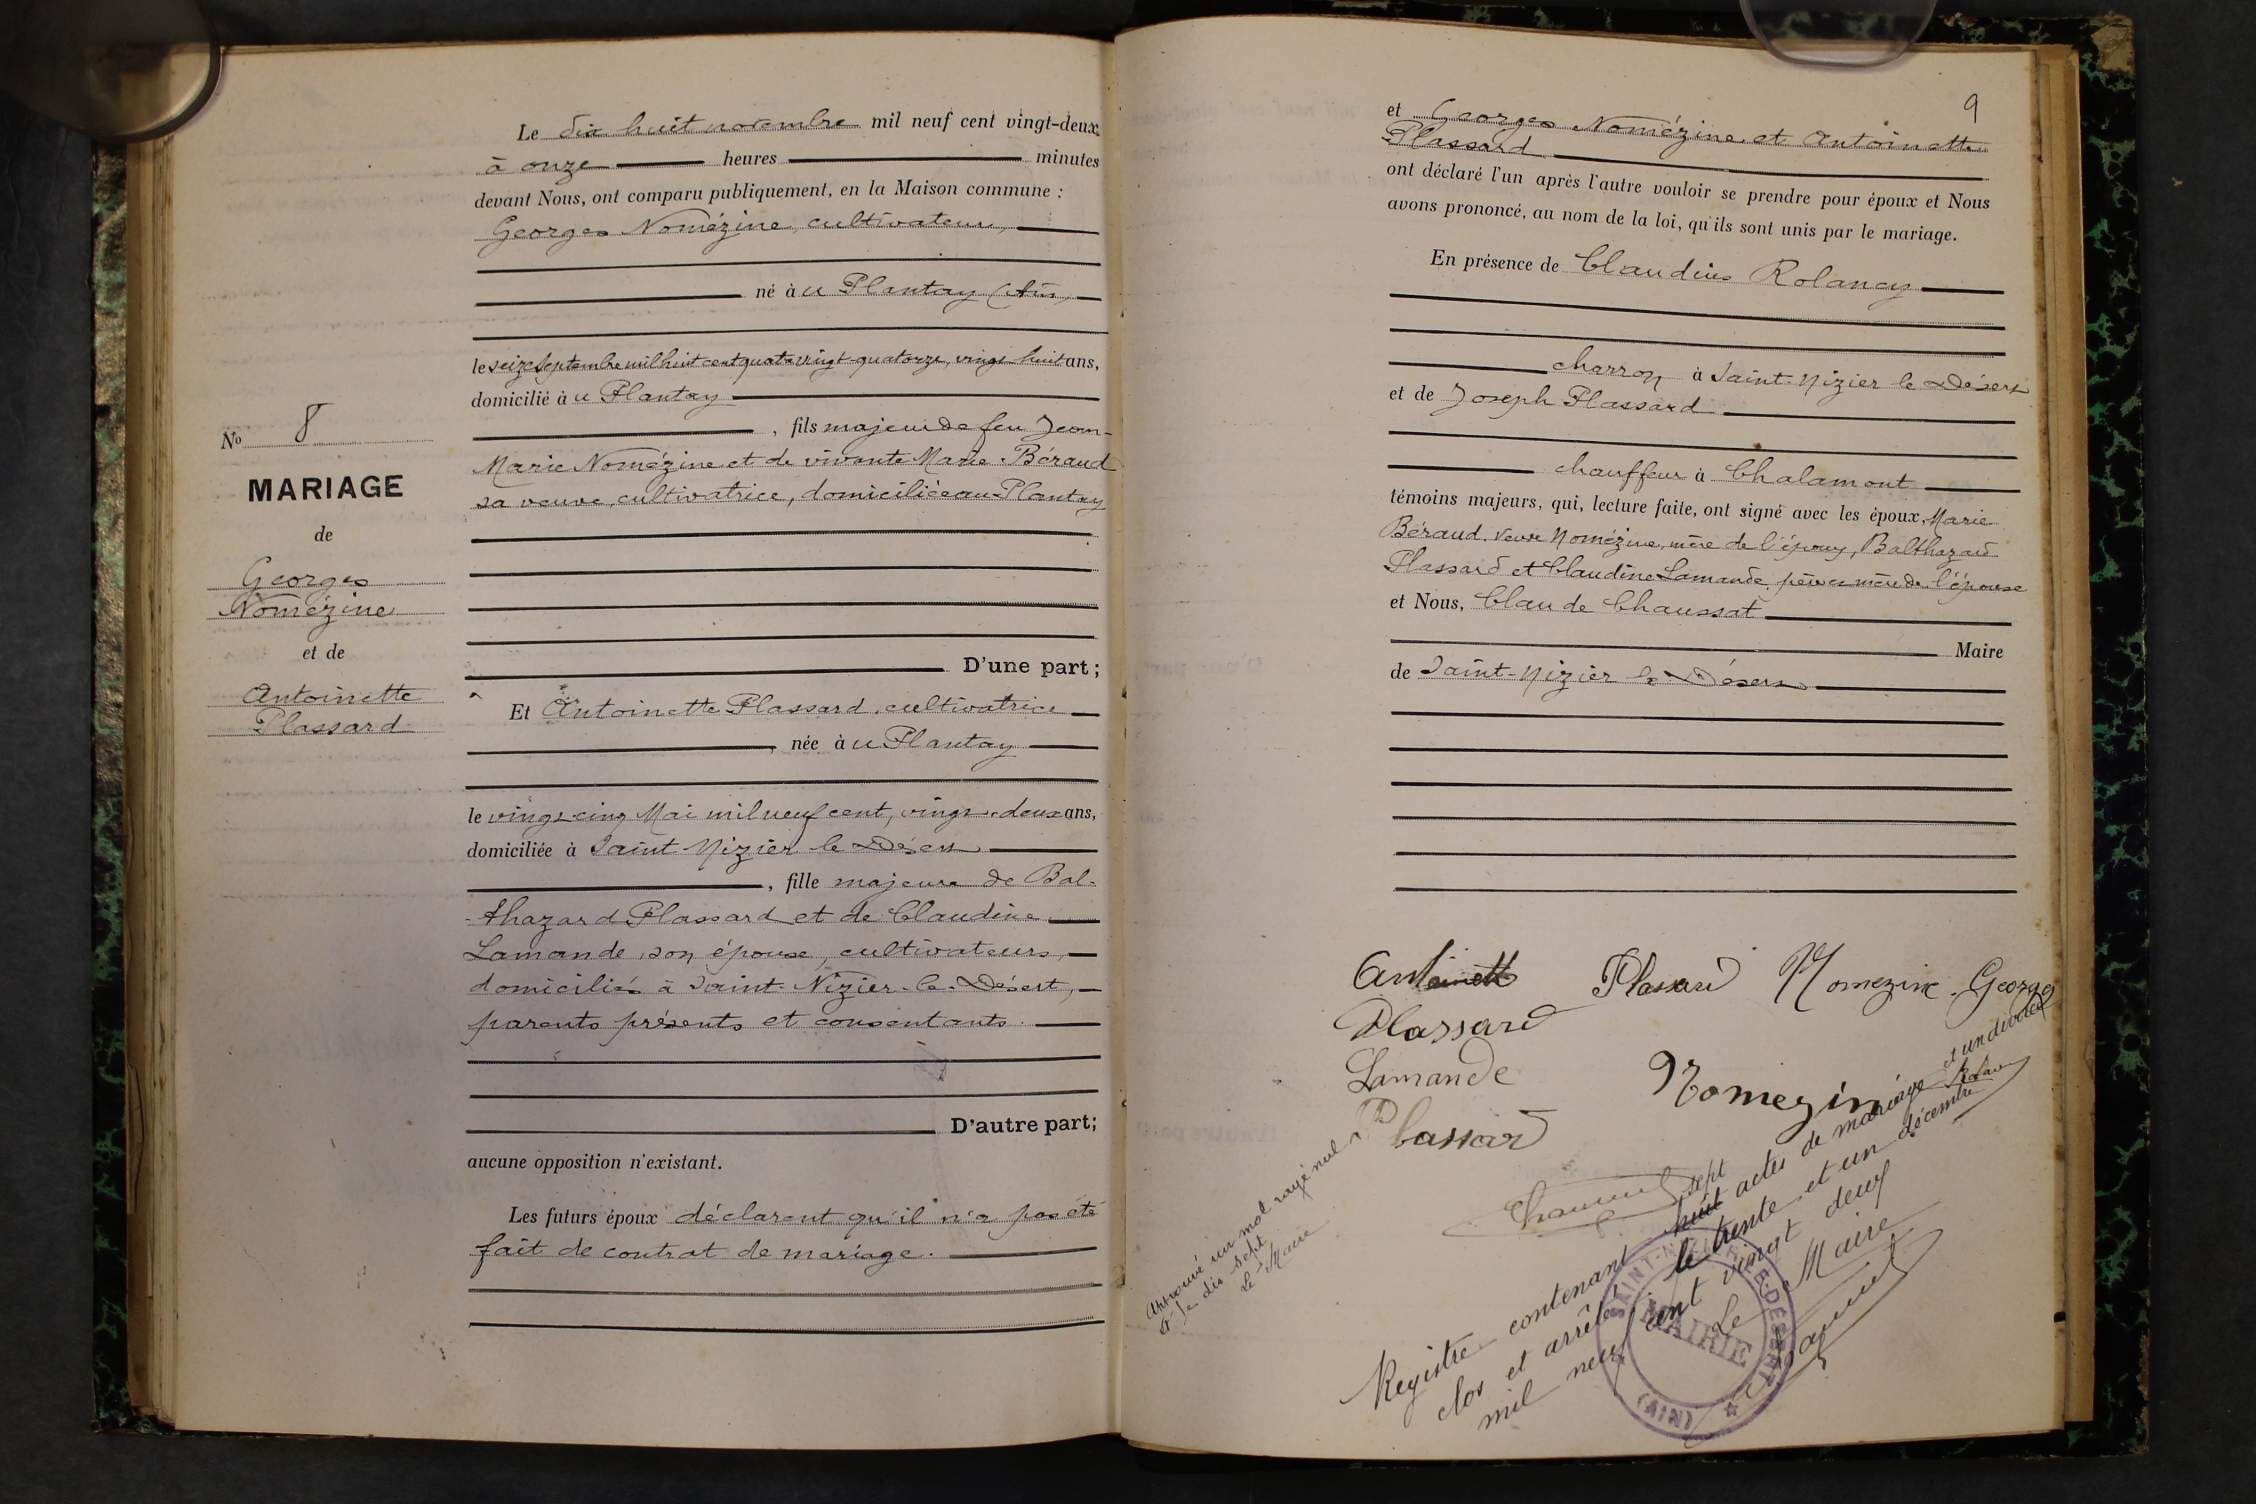 Le dix huit novembre mil neuf cent vingt-deux
à onze heures minutes
devant Nous, ont comparu publiquement, en la Maison commune :
Georges Nomézine, cultivateur,
né à u Plantay (Ain)
le seize septembre mil huit cent quatre vingt-quatorze, vingt huit ans,
domicilié à u Plantay
, fils majeur de feu Jean-
Marie Nomézine et de vivante Marie Béraud
sa veuve, cultivatrice, domiciliée au Plantay
D'une part ;
Et Antoinette Plassard, cultivatrice
, née à u Plantay
le vingt-cinq Mai mil neuf cent, vingt-deux ans,
domiciliée à Saint Nizier le Désert
, fille majeure de Bal-
-thazard Plassard et de Claudine
Lamande, son épouse, cultivateurs,
domiciliés à Saint-Nizier-le-Désert,
parents présents et consentants.
D'autre part ;
aucune opposition n'existant.
Les futurs époux déclarent qu'il n'a pas été
fait de contrat de mariage.
No 8
MARIAGE
de
Georges
Nomézine
et de
Antoinette
Plassard
9
et Georges Nomézine et Antoinette
Plassard
ont déclaré l'un après l'autre vouloir se prendre pour époux et Nous
avons prononcé, au nom de la loi, qu'ils sont unis par le mariage.
En présence de Claudius Rolancy
charron à Saint-Nizier le Désert
et de Joseph Plassard
chauffeur à Chalamont
témoins majeurs, qui, lecture faite, ont signé avec les époux, Marie
Béraud, veuve Nomézine, mère de l'époux, Balthazard
Plassard et Claudine Lamande, père et mère de l'épouse
et Nous, Claude Chaussat
Maire
de Saint-Nizier le Désert
Antoinette Plassard Nomezine Georges
Plassard
Lamande Nomezine
Plassard
Approuvé un mot rayé nul
& je dis sept
Le Maire
Registre contenant huit sept actes de mariage et un divorce
clos et arrêté le trente et un décembre
mil neuf cent vingt deux
Le Maire
SAINT-NIZIER-LE-DÉSERT
MAIRIE
(AIN)